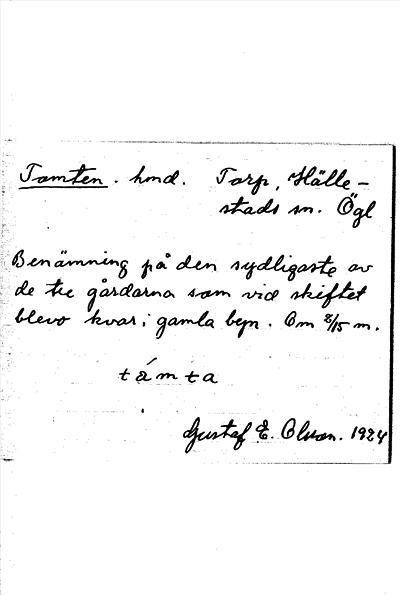 Tomten. hmd. Torp, Hälle-
stads sn. Ögl
Benämning på den sydligaste av
de tre gårdarna som vid skiftet
blevo kvar i gamla byn. Om 8/15 m.
támta
Gustaf E. Olsson. 1924